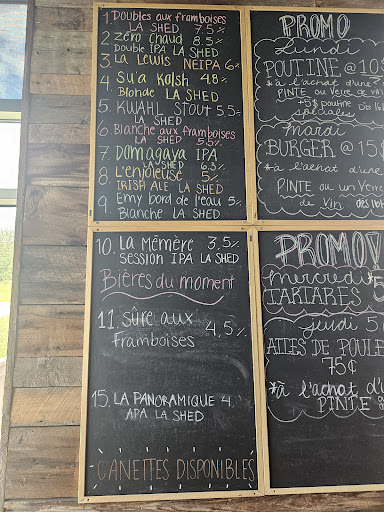 1 Doubles aux framboises
LA SHED 7.5%
2 zéro chaud 8.5%
Double IPA LA SHED
3 La Lewis NEIPA 6%
LA SHED
4 Su'a Kolsh 4.8%
Blonde LA SHED
5 KWAHL STOUT 5,5%
LA SHED
6 Blanche aux framboises
LA SHED 5.5%
7 Damagaya IPA
LA SHED 6.3%
8 L'enjôleuse 5%
IRISH ALE LA SHED
9 Emy bord de l'eau 5%
Blanche LA SHED
10. La Mémère 3.5%
SESSION IPA LA SHED
Bières du moment
11. sûre aux
Framboises 4,5%
15. LA PANORAMIQUE 4
APA LA SHED
CANETTES DISPONIBLES
PROMO
Lundi
POUTINE @ 10$
*à l'achat d'une
PINTE ou Verre de
+5$ poutine
spéciales
Mardi
BURGER @ 15
*à l'achat d'une
PINTE ou un Verre
de Vin
PROMO
mercredi
TARTARES
jeudi 5
AILES DE POULE
75¢
*à l'achat d'
PINTE